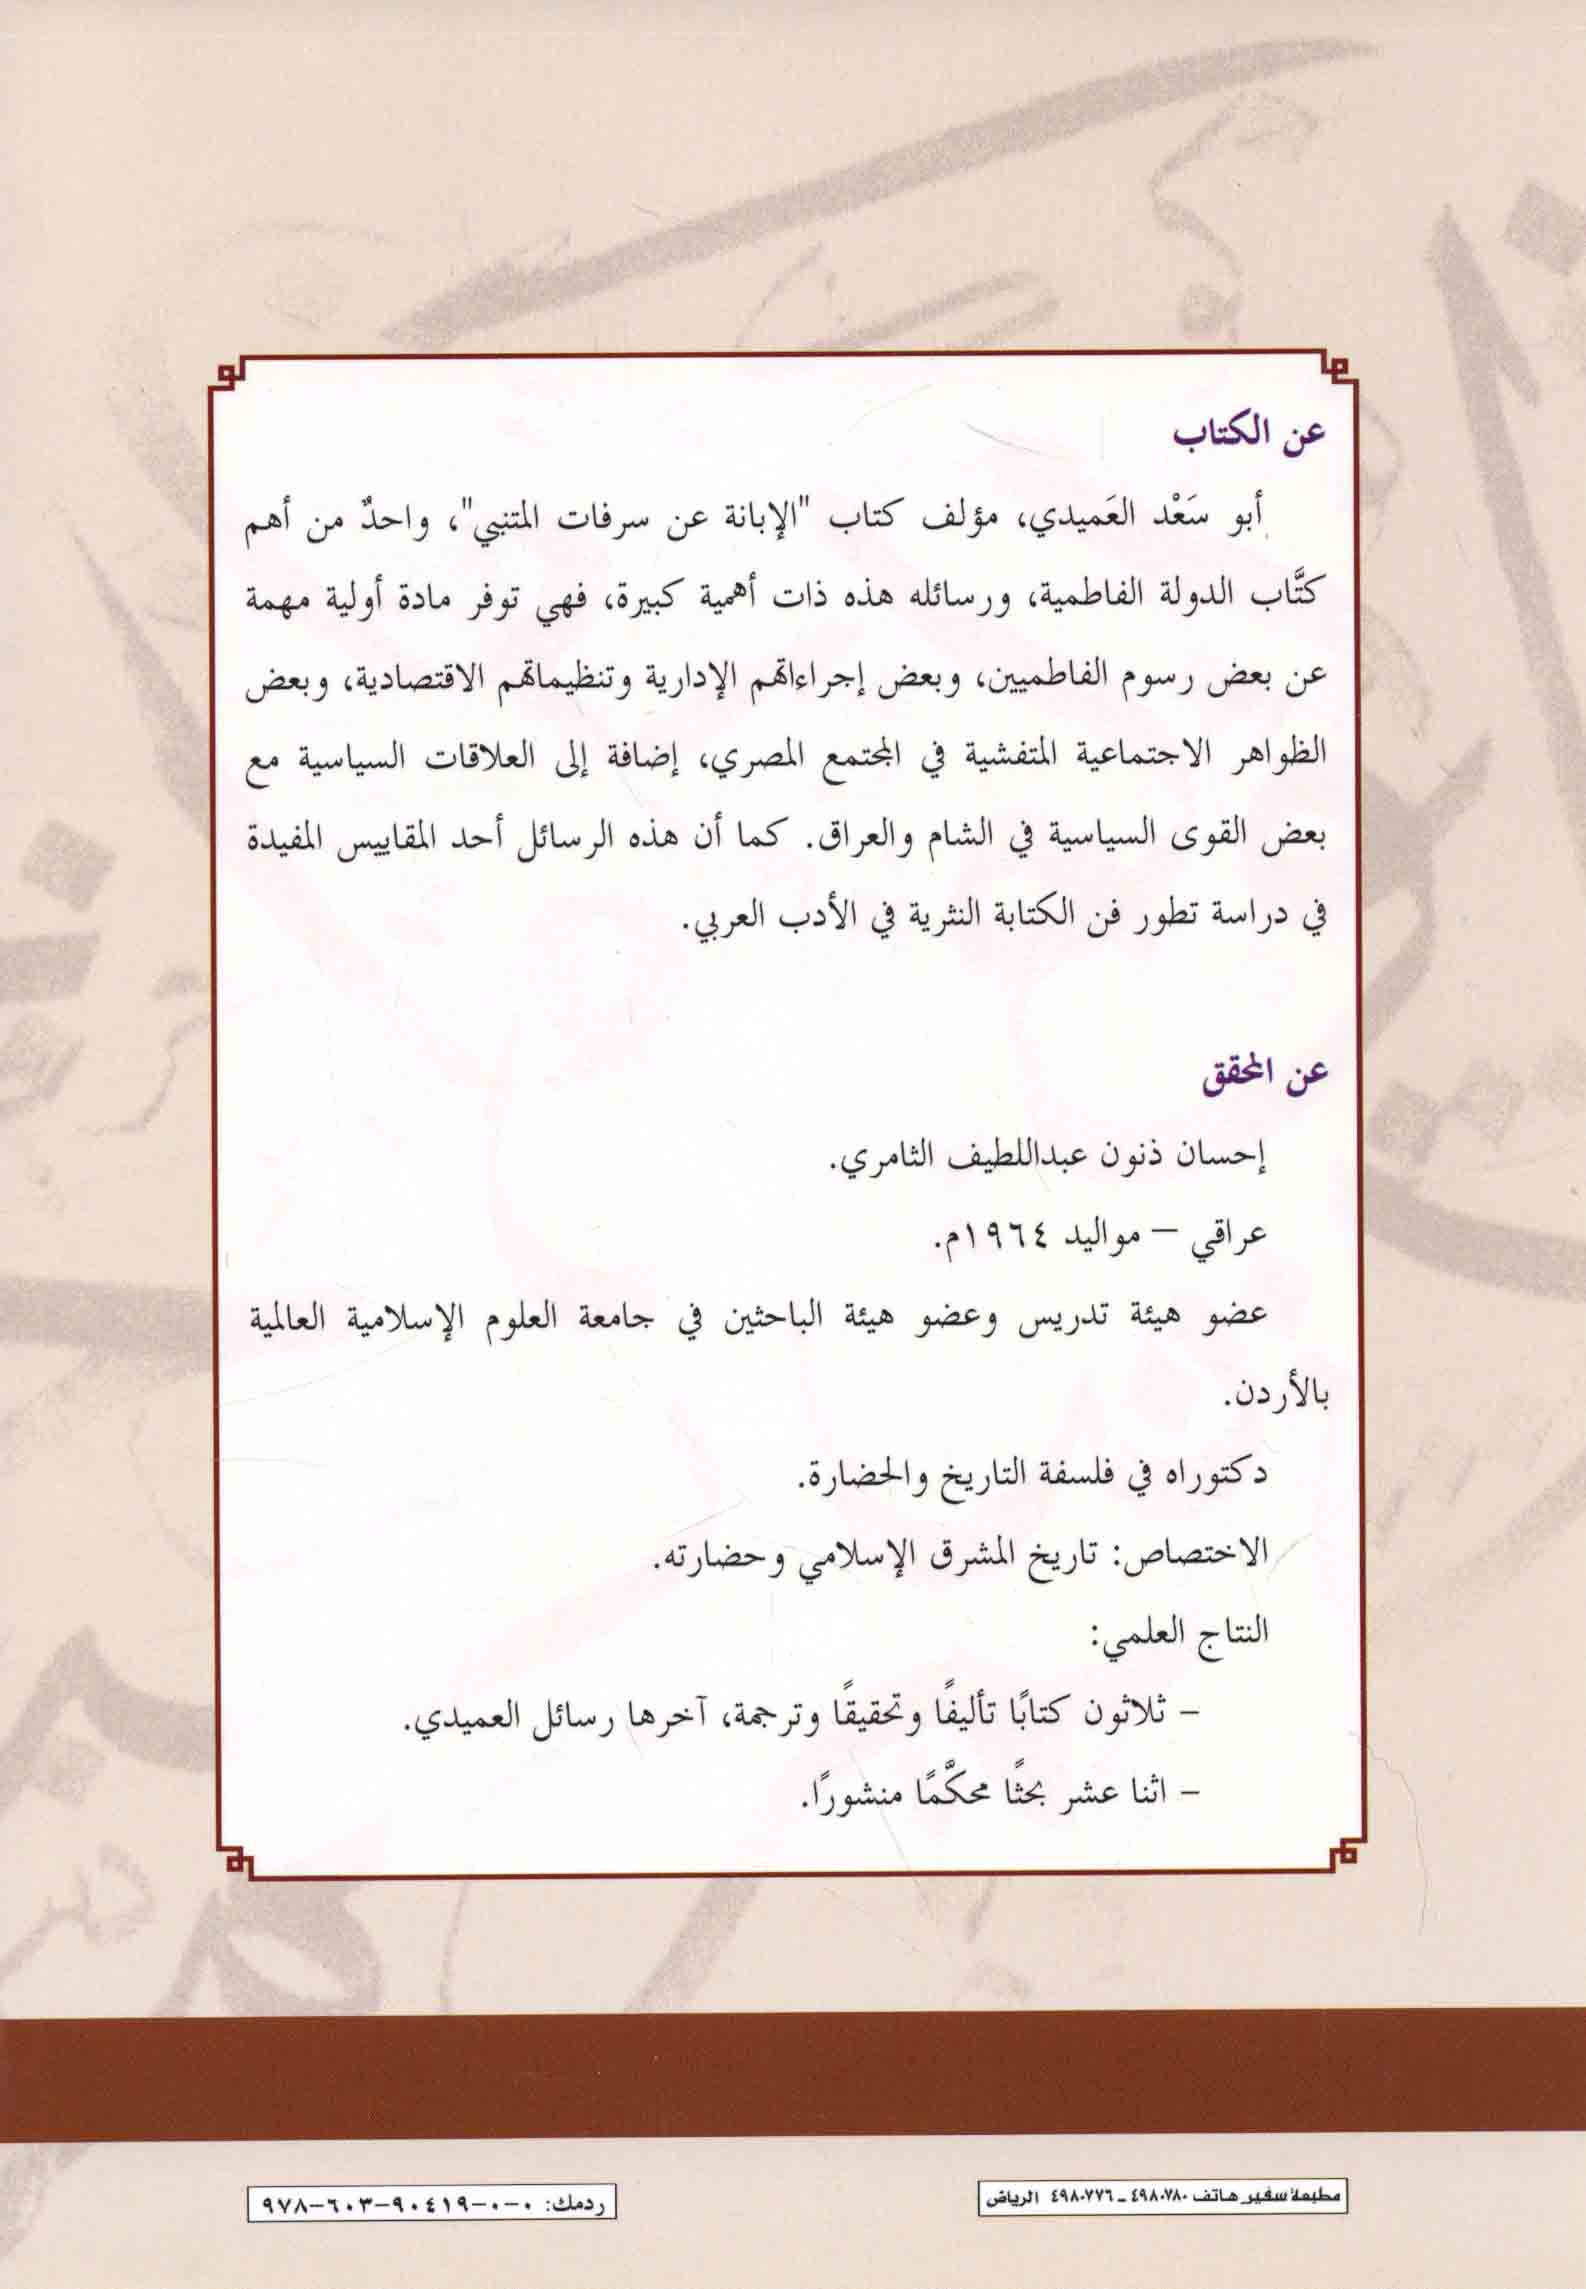 عن الكتاب
أبو سَعْد العَميدي، مؤلف كتاب "الإبانة عن سرفات المتنبي"، واحدٌ من أهم
كتَّاب الدولة الفاطمية، ورسائله هذه ذات أهمية كبيرة، فهي توفر مادة أولية مهمة
عن بعض رسوم الفاطميين، وبعض إجراءاتهم الإدارية وتنظيماتهم الاقتصادية، وبعض
الظواهر الاجتماعية المتفشية في المجتمع المصري، إضافة إلى العلاقات السياسية مع
بعض القوى السياسية في الشام والعراق. كما أن هذه الرسائل أحد المقاييس المفيدة
في دراسة تطور فن الكتابة النثرية في الأدب العربي.
عن المحقق
إحسان ذنون عبداللطيف الثامري.
عراقي – مواليد ١٩٦٤م.
عضو هيئة تدريس وعضو هيئة الباحثين في جامعة العلوم الإسلامية العالمية
بالأردن.
دكتوراه في فلسفة التاريخ والحضارة.
الاختصاص: تاريخ المشرق الإسلامي وحضارته.
النتاج العلمي:
– ثلاثون كتابًا تأليفًا وتحقيقًا وترجمة، آخرها رسائل العميدي.
– اثنا عشر بحثًا محكَّمًا منشورًا.
مطبعة سفير هاتف ٤٩٨٠٧٨٠ ـ ٤٩٨٠٧٧٦ الرياض
ردمك: ٠-٠-٩٠٤١٩-٦٠٣-٩٧٨